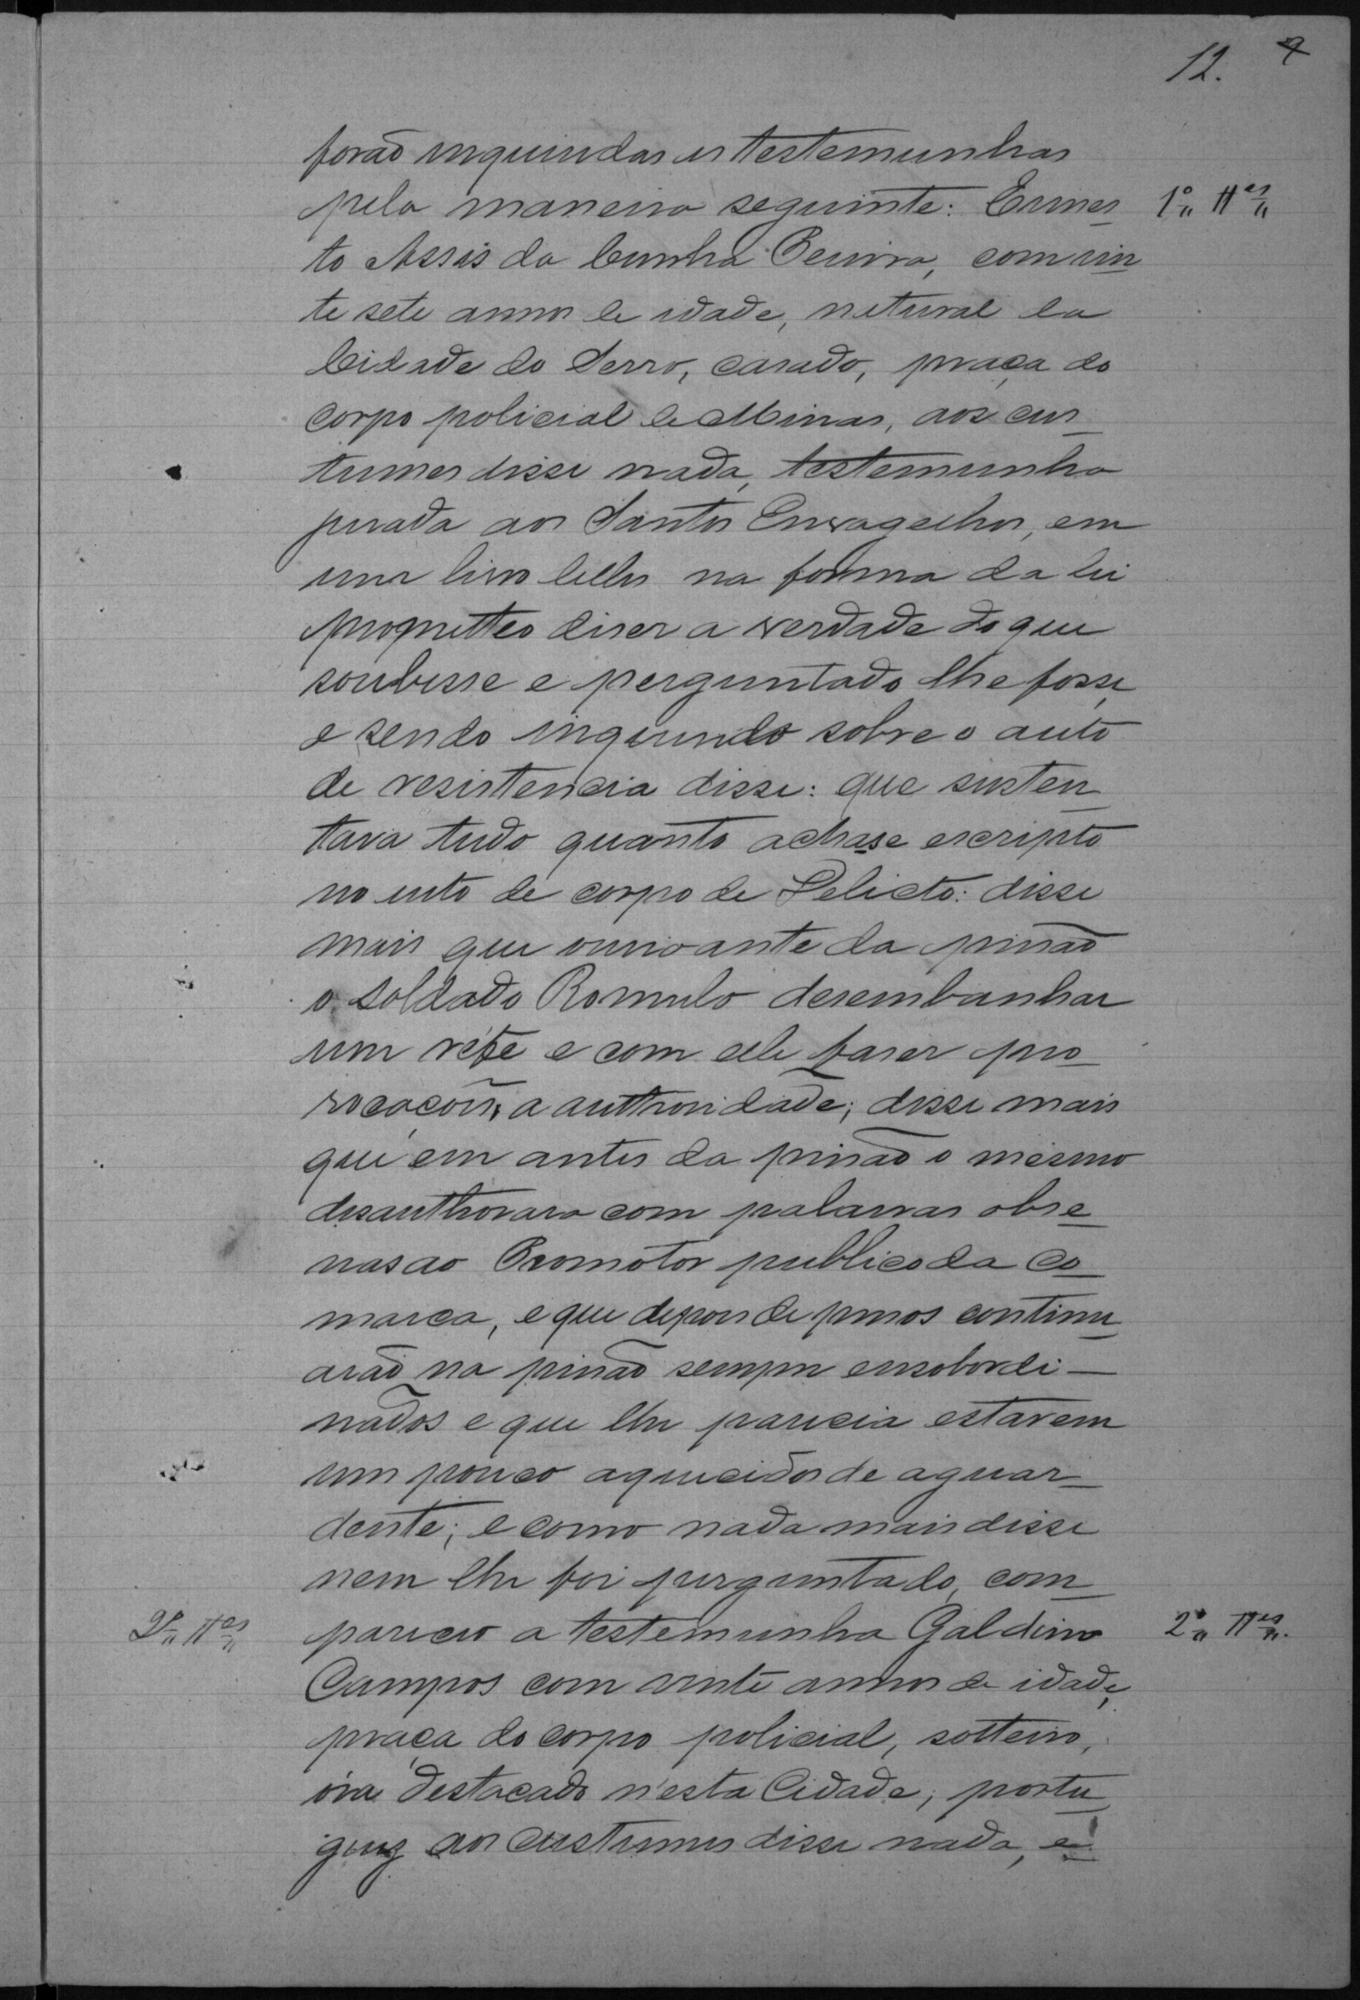 12.
forão inquiridas as testemunhas
pela maneira seguinte: Ernes-
1ª Tes
to Assis da Cunha Pereira, com vin
te sete annos de idade, natural da
Cidade do Serro, casado, praça do
corpo policial de Minas, aos cus-
tumes disse nada, testemunha
jurada aos Santos Envagelhos, em
um livro delles na forma da lei
prometteo diser a verdade do que
soubesse e perguntado lhe fosse,
e sendo inquirido sobre o auto
de resistencia disse: que susten-
tava tudo quanto achase escripto
no auto de corpo de Delicto: disse
mais que ouvio ante da prisão
o soldado Romulo desembanhar
um refe e com elle faser pro-
vocacões a authoridade; disse mais
que em antes da prisão o mesmo
desauthorara com palavras obse-
nas ao Promotor publico da Co-
marca, e que depois de presos continu-
arão na prisão sempre ensobordi-
nados e que lhe parecia estarem
um pouco aquecidos de aguar-
dente; e como nada mais disse
nem lhe foi perguntado, com-
2ª Tes
pareceo a testemunha Galdino
2ª Tes
Campos com vinte annos de idade,
praça do corpo policial, solteiro,
ora destacado n'esta Cidade, portu-
guez aos custumes disse nada, e